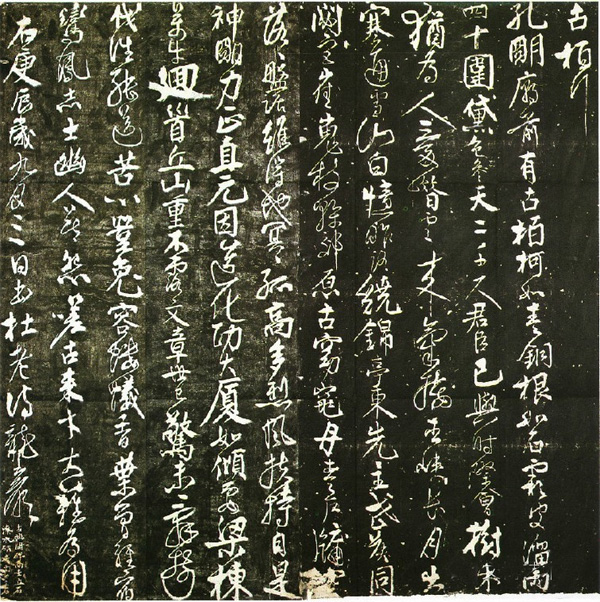 古柏行
孔明廟前有古柏柯如青銅根如石霜皮溜雨
四十圍黛色參天二千尺君臣已與時際會樹木
猶為人愛惜雲來氣接巫峽長月出
寒通雪山白憶昨路繞錦亭東先主武侯同
閟宮崔嵬枝幹郊原古窈窕丹青戶牖空
落落盤踞雖得地冥冥孤高多烈風扶持自是
神明力正直元因造化功大廈如傾要梁棟
萬牛迴首丘山重不露文章世已驚未辭剪
伐誰能送苦心豈免容螻蟻香葉曾經宿
鸞鳳志士幽人莫怨嗟古來才大難為用
右庚辰歲九月三日書杜老詩龍巖